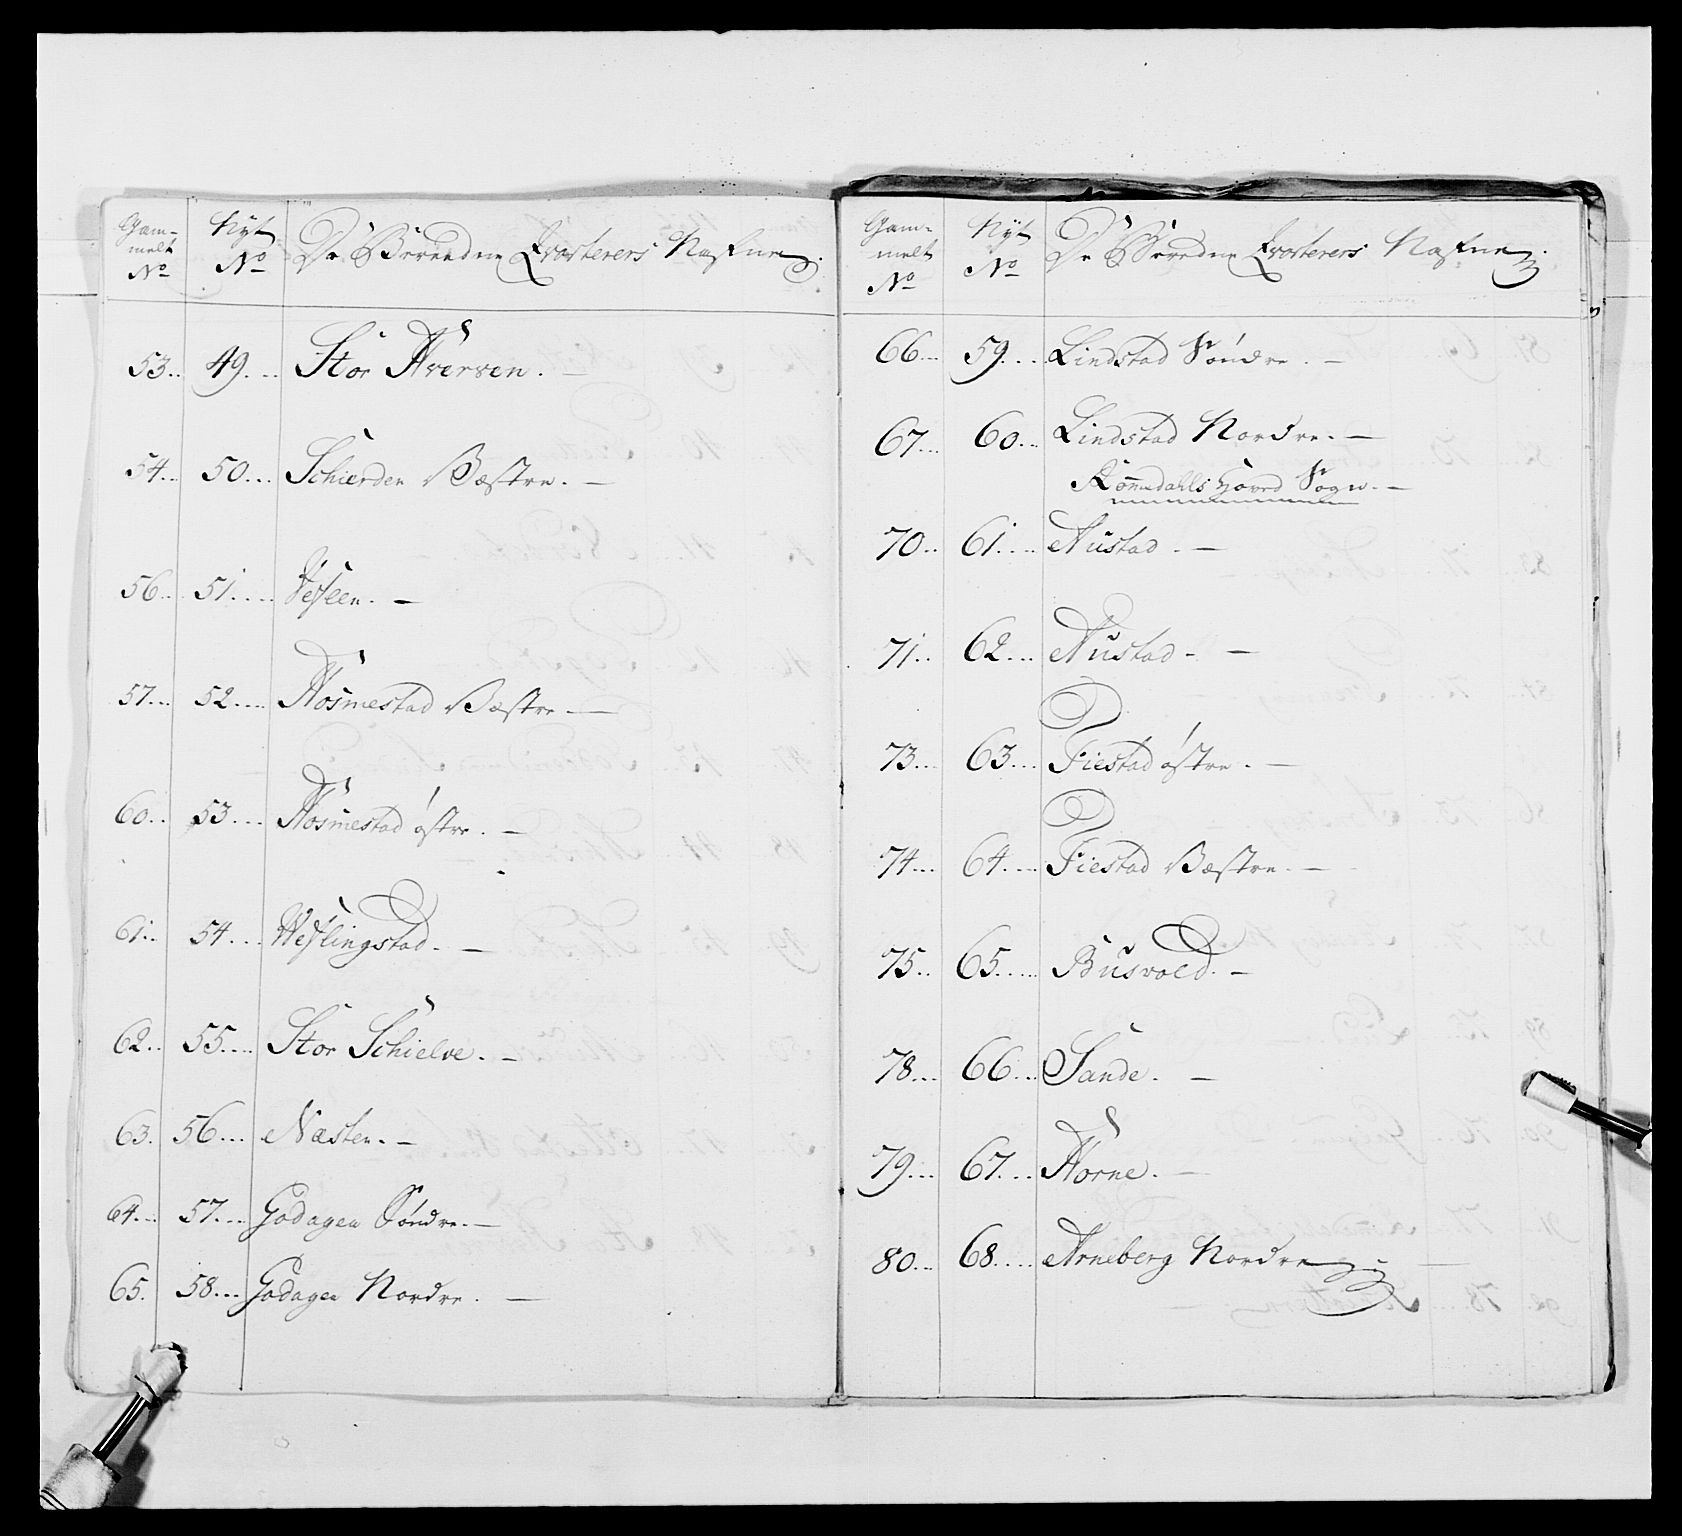 Gam- Nyt De Beredne Qvarterers Nafne.
melt No
No
53.. 49... Stor Hversen. —
54... 50... Schierden Væstre. —
56... 51.... Vesleen. —
57... 52.... Hosmestad Væstre. —
60... 53... Hosmestad østre. —
61... 54... Weslingstad. —
62.. 55.... Stor Schielve. —
63. 56... Næsten. —
64... 57... Godagen Søndre. —
65. 58... Godagen Nordre. —
Gam- Nyt De Beredne Qvarterers Nafne.
melt No
No
66... 59... Lindstad Søndre. —
67... 60... Lindstad Nordre. —
Rommedahls Hoved Sogn. —
70.. 61.... Nustad. —
71.. 62... Nustad. —
73... 63... Fiestad østre. —
74... 64.... Fiestad Væstre. —
75.. 65..... Busvold. —
78... 66... Sande. —
79... 67... Horne. —
80... 68.... Arneberg Nordre